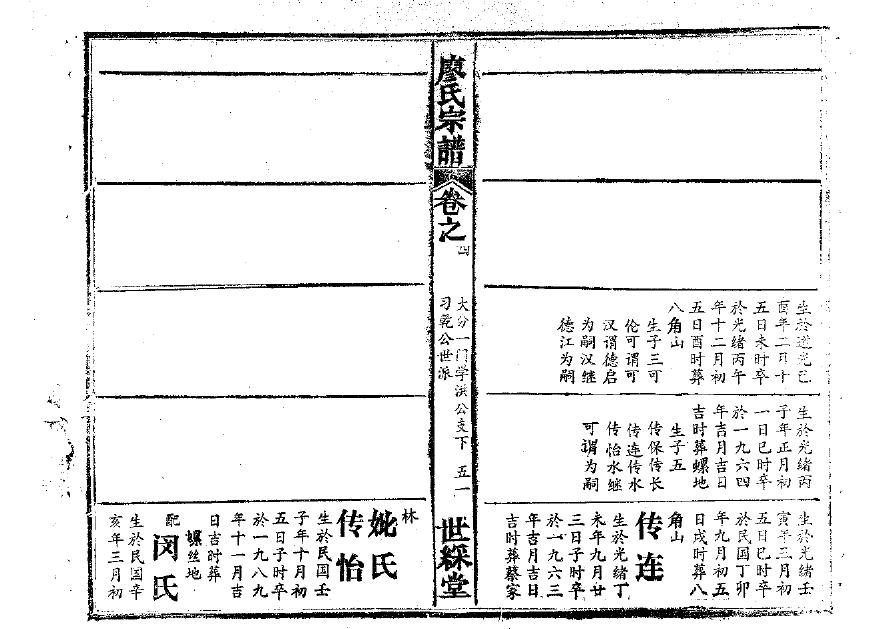 生於道光己
酉年二月十
五日未时卒
於光绪丙午
年十二月初
五日酉时葬
八角山
生子三可
伦可谓可
汉谓德启
为嗣汉继
德江为嗣
生於光绪丙
子年正月初
一日巳时卒
於一九六四
年吉月吉日
吉时葬螺地
生子五
传保传长
传连传水
传怡水继
可谓为嗣
生於光绪壬
寅年三月初
五日巳时卒
於民国丁卯
年九月初五
日戌时葬八
角山
传连
生於光绪丁
未年九月廿
三日子时卒
於一九六三
年吉月吉日
吉时葬蔡家
廖氏宗譜
卷之四
大分一门学洪公支下 五一
习乾公世派
世綵堂
林
妣氏
传怡
生於民国壬
子年十月初
五日子时卒
於一九八九
年十一月吉
日吉时葬
螺丝地
配
闵氏
生於民国辛
亥年三月初